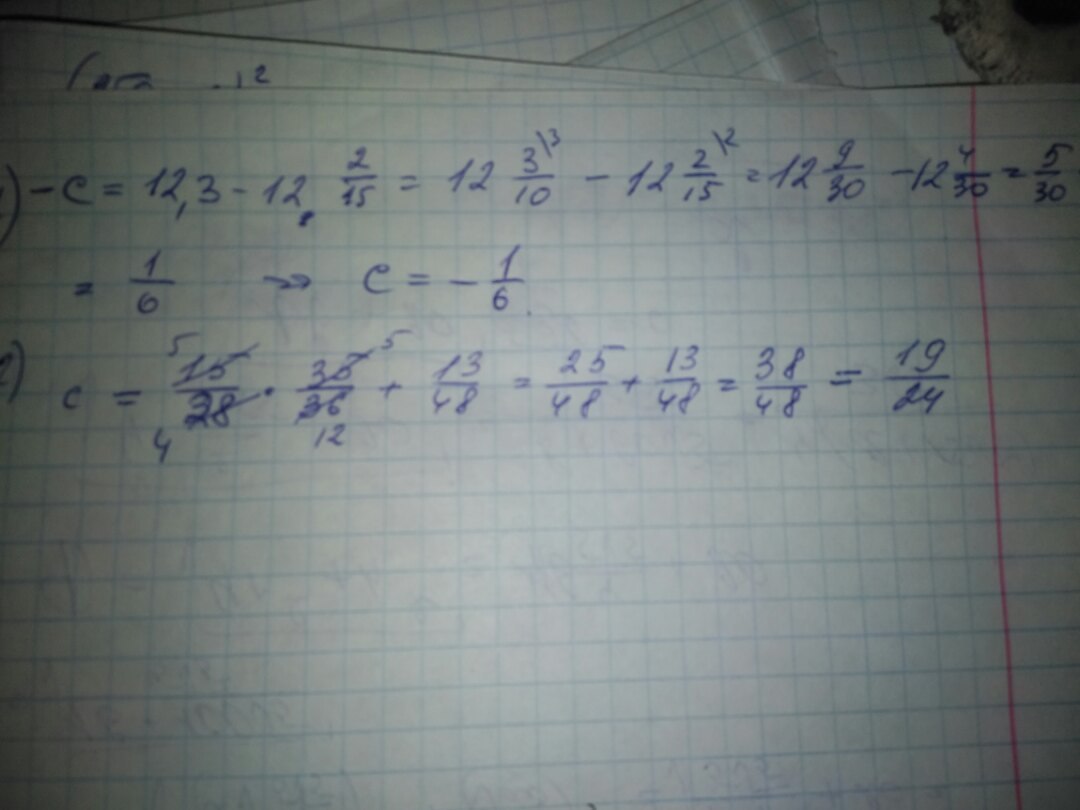 1) -c = 12,3 - 12 2/15 = 12 3/10 \3 - 12 2/15 \2 = 12 9/30 - 12 4/30 = 5/30
= 1/6 => c = - 1/6.
2) c = 5 15/28 4 · 35/36 5 12 + 13/48 = 25/48 + 13/48 = 38/48 = 19/24